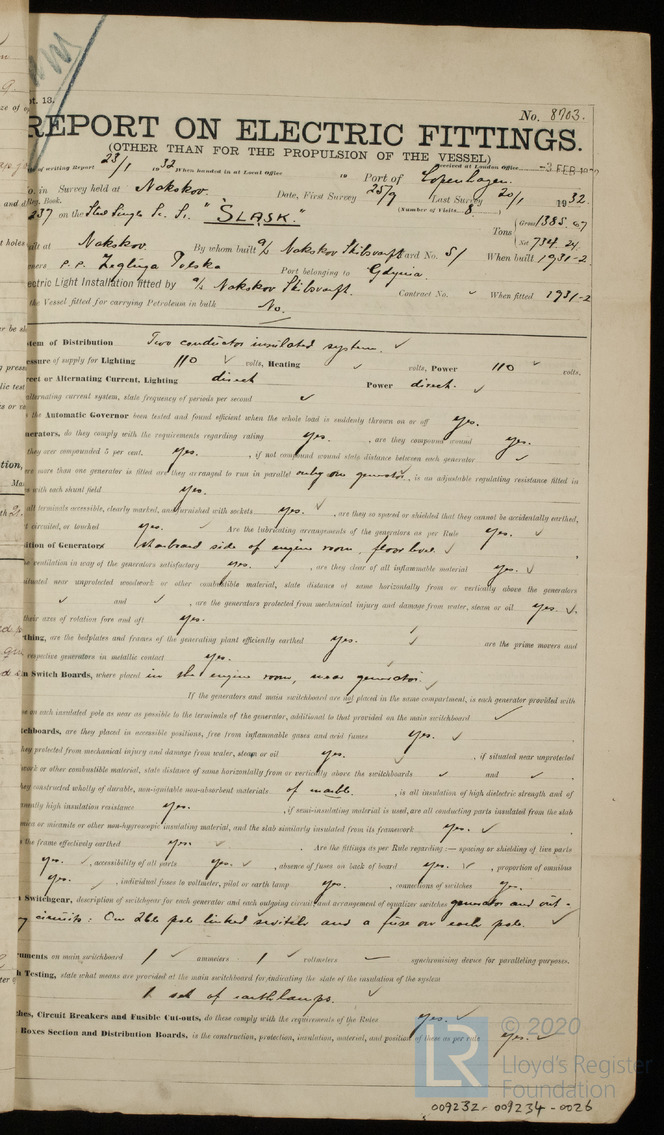 pt. 13.
No. 8703.
REPORT ON ELECTRIC FITTINGS.
(OTHER THAN FOR THE PROPULSION OF THE VESSEL)
of writing Report 23/1 1932 When handed in at Local Office 19 Port of Copenhagen. Received at London Office -3 FEB 1932
o. in Survey held at Nakskov. Date, First Survey 25/9 Last Survey 20/1 1932.
Reg. Book. (Number of Visits 8.)
237 on the Steel Single Sc. St. "ŚLĄSK." Tons { Gross 1385.67 Net 734.24
uilt at Nakskov. By whom built A/S Nakskov Skibsværft Yard No. 51 When built 1931-2
ners P.P. Zegluga Polska Port belonging to Gdynia.
ectric Light Installation fitted by A/S Nakskov Skibsværft. Contract No. ✓ When fitted 1931-2
the Vessel fitted for carrying Petroleum in bulk No.
stem of Distribution Two conductor insulated system. ✓
essure of supply for Lighting 110 ✓ volts, Heating ✓ volts, Power 110 ✓ volts.
rect or Alternating Current, Lighting direct Power direct. ✓
alternating current system, state frequency of periods per second ✓
the Automatic Governor been tested and found efficient when the whole load is suddenly thrown on or off yes.
nerators, do they comply with the requirements regarding rating yes. , are they compound wound yes.
they over compounded 5 per cent. yes. , if not compound wound state distance between each generator ✓
ere more than one generator is fitted are they arranged to run in parallel only one generator, is an adjustable regulating resistance fitted in
es with each shunt field yes.
all terminals accessible, clearly marked, and furnished with sockets yes. ✓, are they so spaced or shielded that they cannot be accidentally earthed,
t circuited, or touched yes. ✓ Are the lubricating arrangements of the generators as per Rule yes. ✓
sition of Generators starboard side of engine room, floor level. ✓
he ventilation in way of the generators satisfactory yes. ✓, are they clear of all inflammable material yes. ✓
ituated near unprotected woodwork or other combustible material, state distance of same horizontally from or vertically above the generators
✓ and ✓, are the generators protected from mechanical injury and damage from water, steam or oil yes. ✓.
their axes of rotation fore and aft yes.
thing, are the bedplates and frames of the generating plant efficiently earthed yes. ✓ are the prime movers and
respective generators in metallic contact yes. ✓
n Switch Boards, where placed in the engine room, near generator. ✓
If the generators and main switchboard are not placed in the same compartment, is each generator provided with
se on each insulated pole as near as possible to the terminals of the generator, additional to that provided on the main switchboard ✓
tchboards, are they placed in accessible positions, free from inflammable gases and acid fumes yes. ✓
hey protected from mechanical injury and damage from water, steam or oil yes. ✓, if situated near unprotected
work or other combustible material, state distance of same horizontally from or vertically above the switchboards ✓ and ✓
hey constructed wholly of durable, non-ignitable non-absorbent materials of marble. , is all insulation of high dielectric strength and of
anently high insulation resistance yes. , if semi-insulating material is used, are all conducting parts insulated from the slab
mica or micanite or other non-hygroscopic insulating material, and the slab similarly insulated from its framework yes. ✓
s the frame effectively earthed yes. ✓. Are the fittings as per Rule regarding:— spacing or shielding of live parts
yes. ✓, accessibility of all parts yes. ✓, absence of fuses on back of board yes. ✓, proportion of omnibus
yes. ✓, individual fuses to voltmeter, pilot or earth lamp yes. , connections of switches yes.
n Switchgear, description of switchgear for each generator and each outgoing circuit and arrangement of equalizer switches generator and out-
g circuits: One dble pole linked switch and a fuse on each pole. ✓
ruments on main switchboard 1 ✓ ammeters 1 ✓ voltmeters — synchronising device for paralleling purposes.
h Testing, state what means are provided at the main switchboard for indicating the state of the insulation of the system
1 set of earth lamps. ✓
hes, Circuit Breakers and Fusible Cut-outs, do these comply with the requirements of the Rules yes. ✓
Boxes Section and Distribution Boards, is the construction, protection, insulation, material, and position of these as per rule yes. ✓
LR
© 2020
Lloyd's Register
Foundation
009232-009234-0026